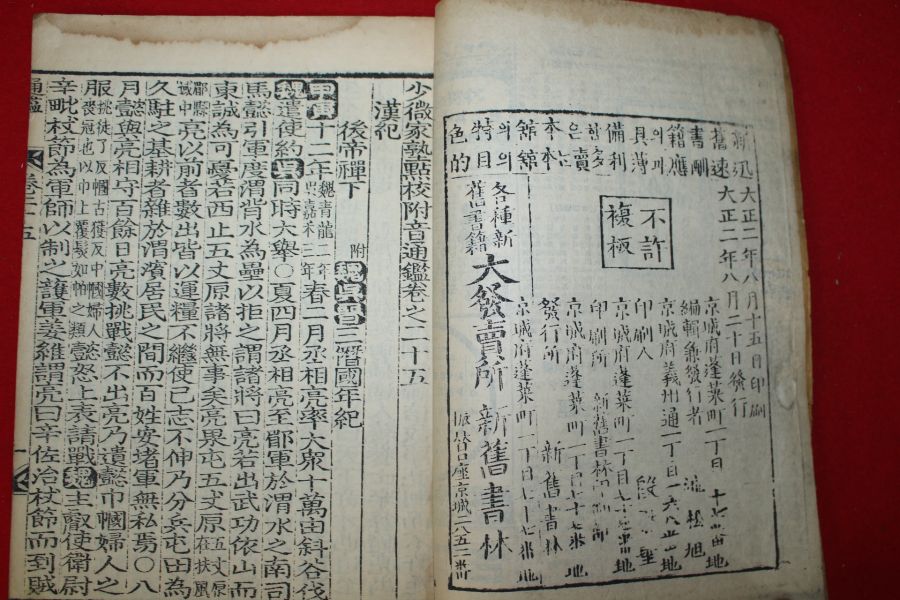 新舊書籍의具備한은本館의特色
迅速酬應의薄利多賣는本館의目的
大正二年八月十五日印刷
大正二年八月二十日發行
不許
複板
京城府蓬萊町一丁目七十七番地
編輯兼發行者
松旭
京城府義州通一丁目一六八番地
印刷人
京城府蓬萊町一丁目七十七番地
印刷所 新舊書林印刷部
京城府蓬萊町一丁目七十七番地
發行所 新舊書林
各種新
舊書籍
大發賣所 新舊書林
京城府蓬萊町一丁目七十七番地
振替口座京城二八五二番
少微家塾點校附音通鑑卷之二十五
漢紀
後帝禪下 附魏吳二僭國年紀
甲寅十二年魏青龍二年吳嘉禾三年春二月丞相亮率大衆十萬由斜谷伐
魏遣使約吳同時大擧○夏四月丞相亮至郿軍於渭水之南司
馬懿引軍度渭背水為壘以拒之謂諸將曰亮若出武功依山而
東誠為可憂若西止五丈原諸將無事矣亮果屯五丈原五丈原在扶風
郿縣城中亮以前者數出皆以運糧不繼使已志不伸乃分兵屯田為
久駐之基耕者雜於渭濱居民之間而百姓安堵軍無私焉○八
月懿與亮相守百餘日亮數挑戰懿不出亮乃遺懿巾幗婦人之
服挑徒了反幗古獲反巾幗婦人喪冠也以巾上覆髮如帕之類懿怒上表請戰魏主叡使衛尉
辛毗杖節為軍師以制之護軍姜維謂亮曰辛佐治杖節而到賊
通鑑 卷二十五